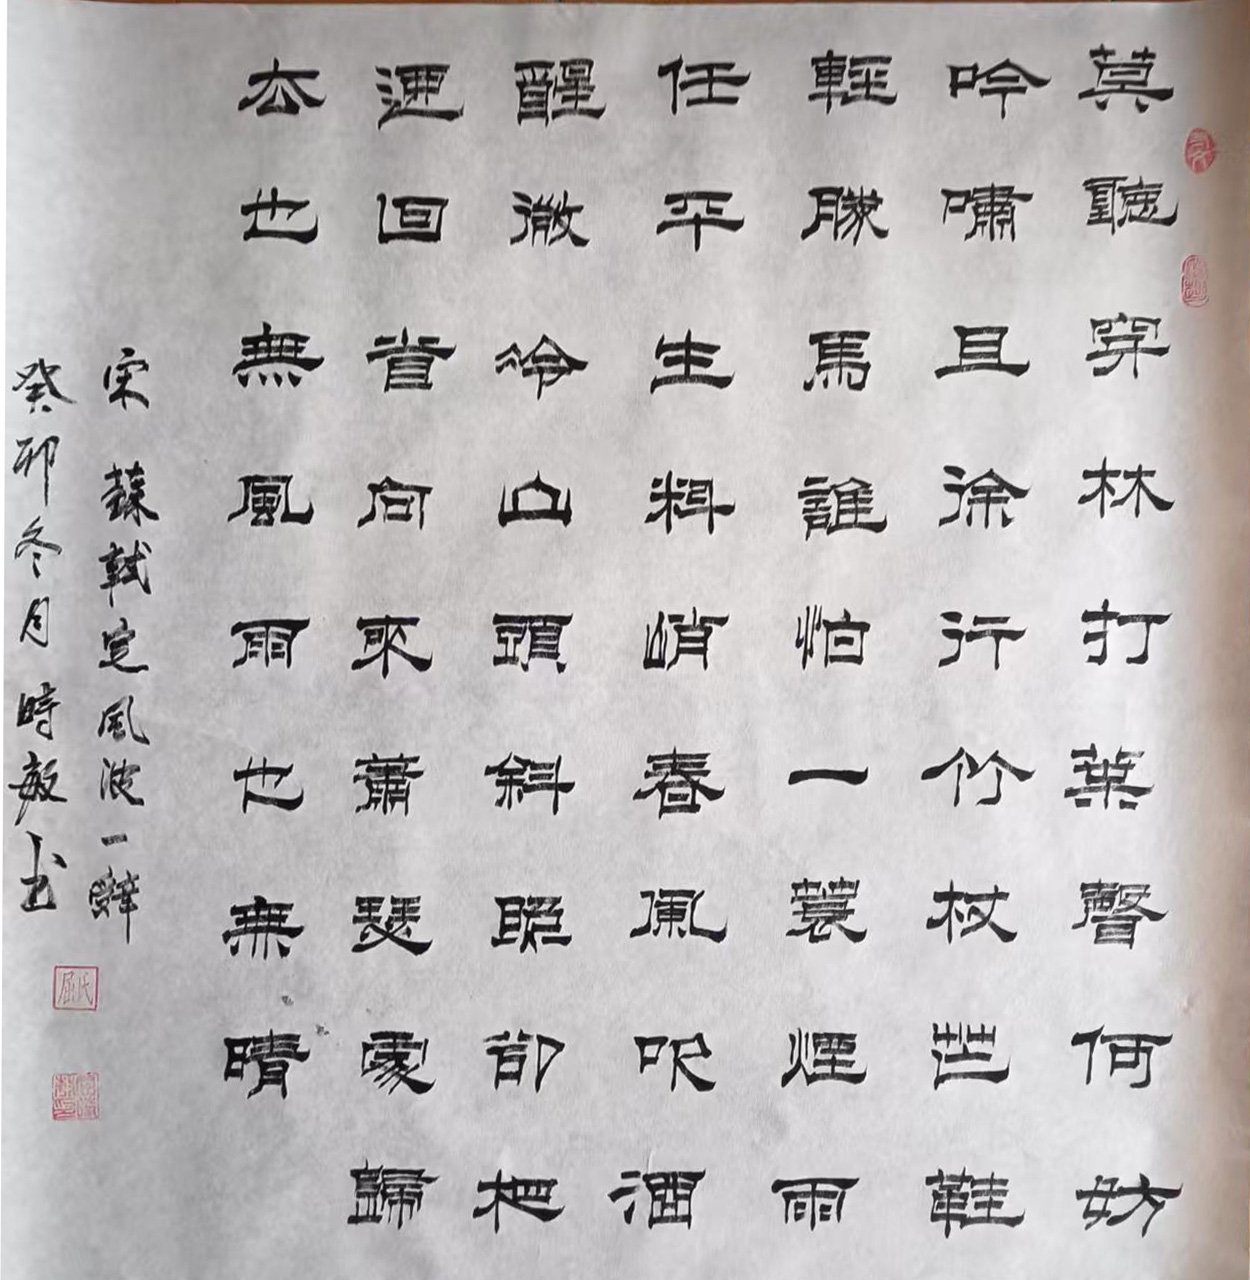 莫聽穿林打葉聲何妨
吟嘯且徐行竹杖芒鞋
輕勝馬誰怕一蓑煙雨
任平生料峭春風吹酒
醒微冷山頭斜照卻相
迎回首向來蕭瑟處歸
去也無風雨也無晴
宋 蘇軾定風波一辭
癸卯冬月時敏书
屈氏